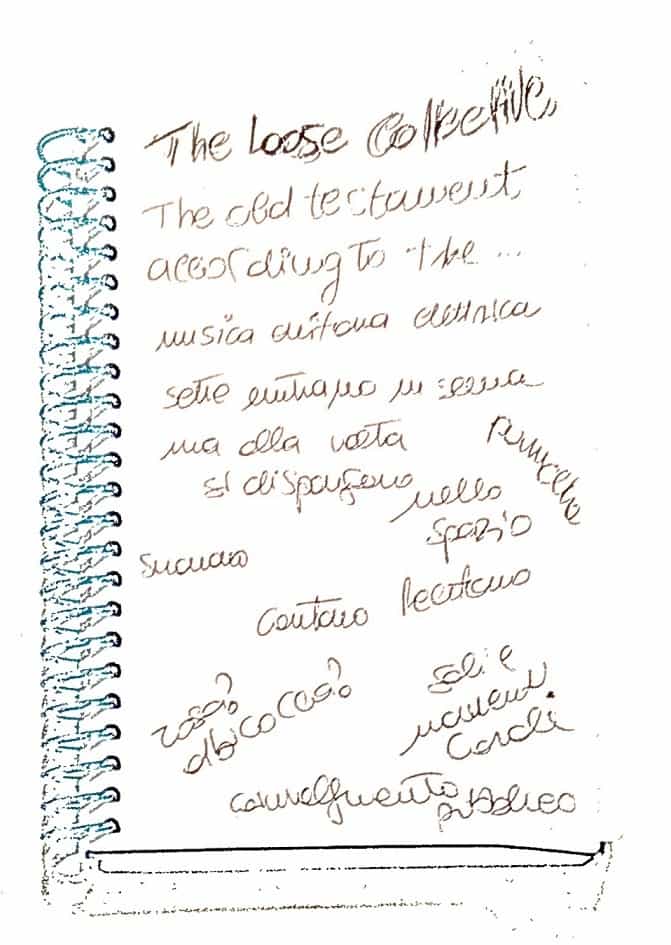 The Loose Collective
The old testament
according to the ...
musica chitarra elettrica
sette entrano in scena
ma alla volta
si dispongono nello
spazio
suonano
cantano recitano
rosa?
albicocca?
soli e
movimenti
corali
coinvolgimento
pubblico